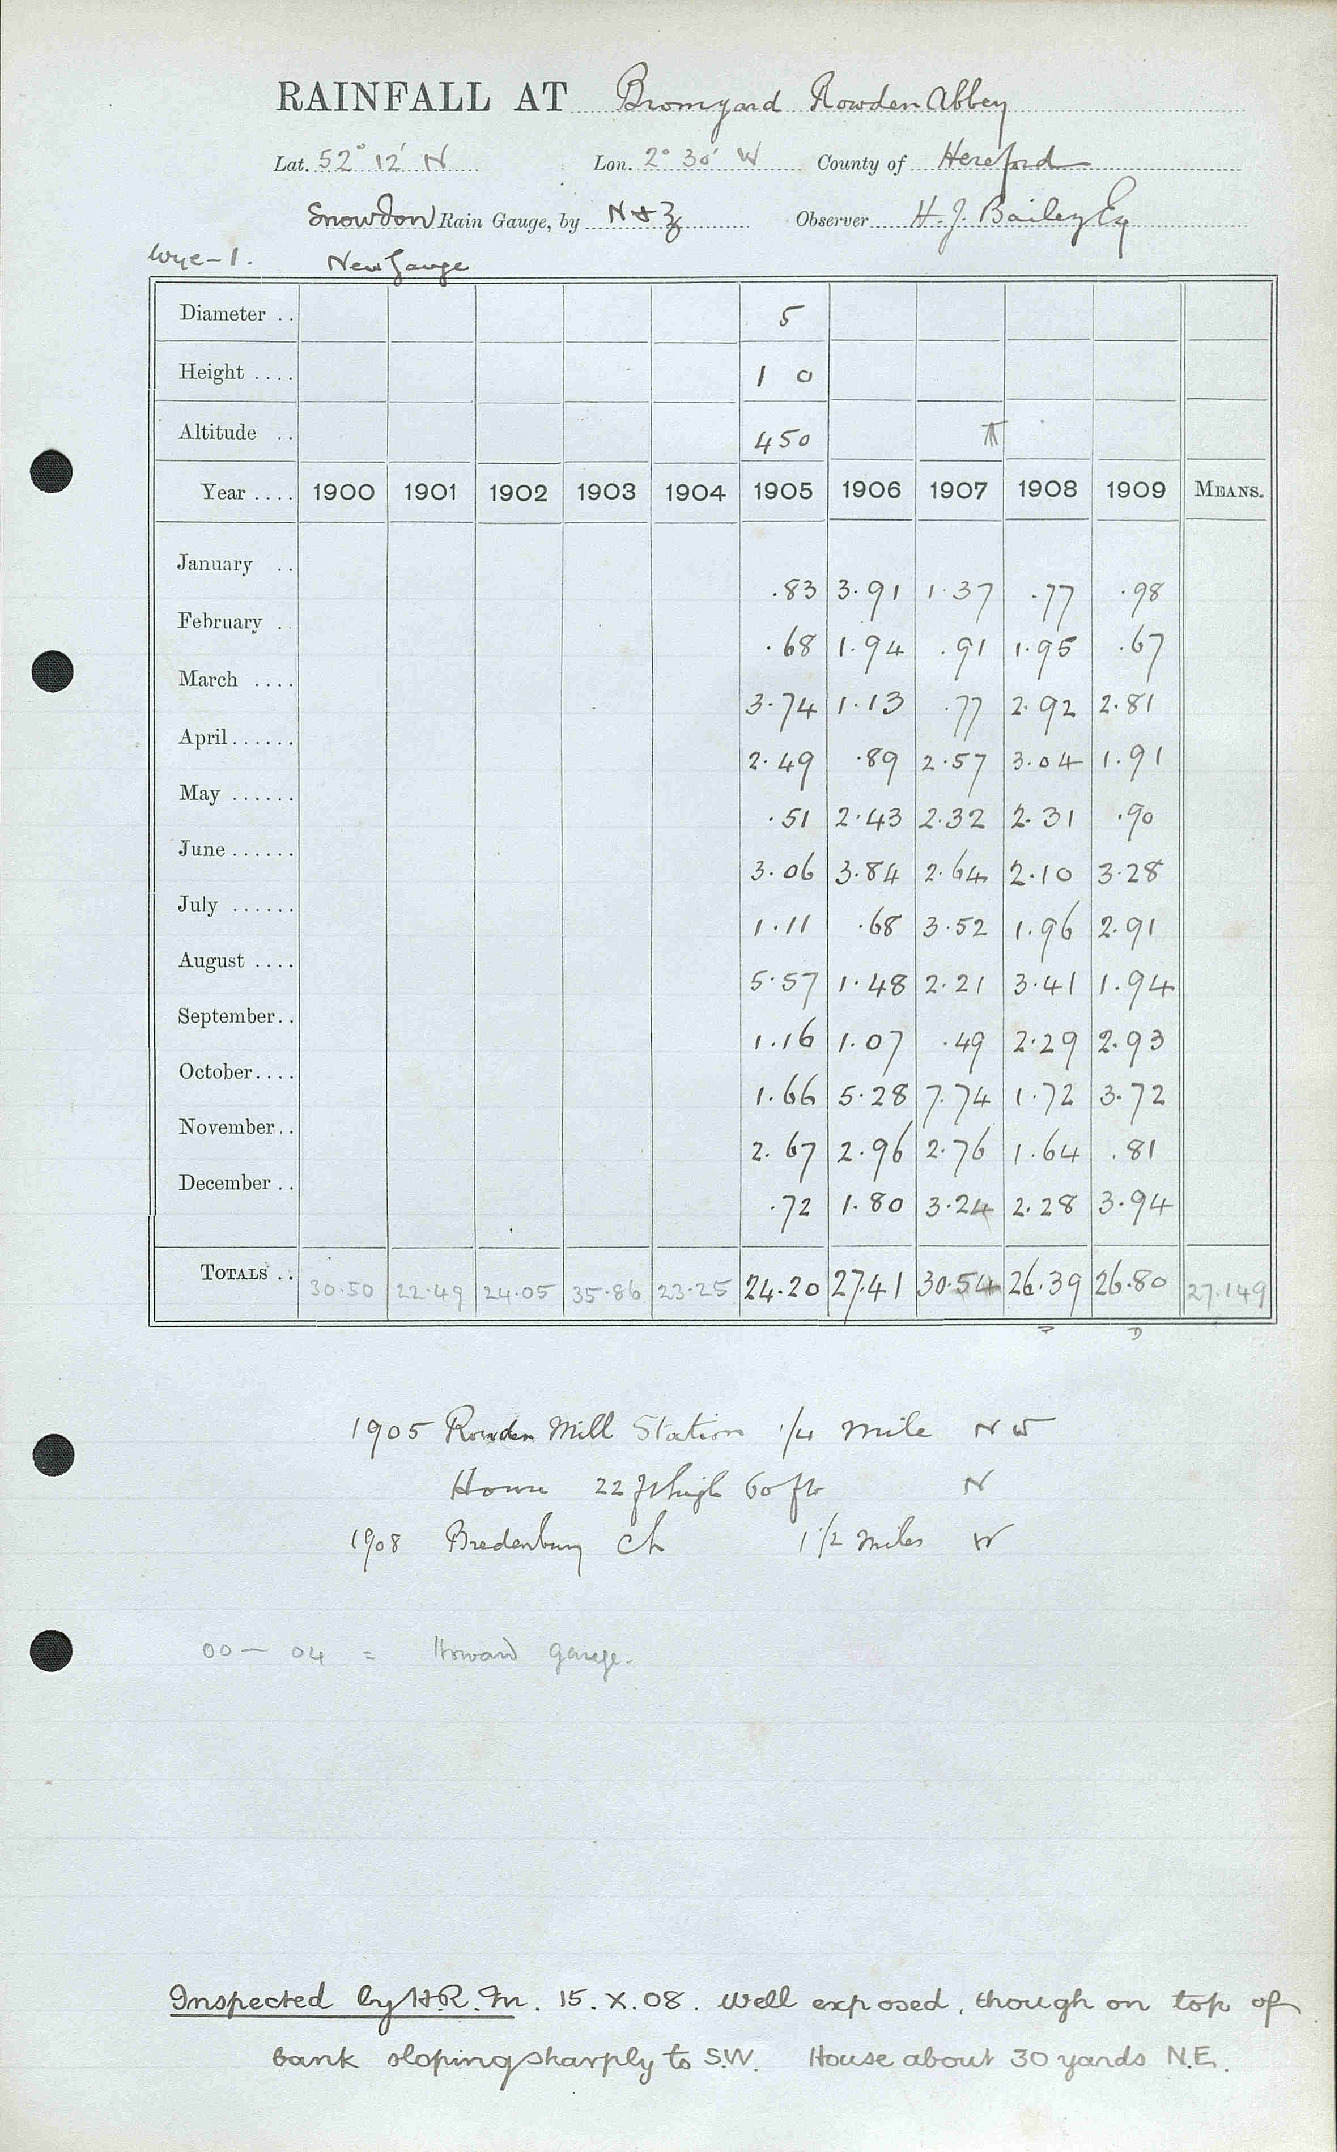 RAINFALL AT Bromyard Rowden Abbey
Lat. 52° 12' N Lon. 2° 30' W County of Hereford
Snowdon Rain Gauge, by N & Z Observer H. J. Bailey Esq
Wye-1. New Gauge
Diameter .. 5
Height .... 1 0
Altitude .. 450
Year .... 1900 1901 1902 1903 1904 1905 1906 1907 1908 1909 MEANS.
January .. .83 3.91 1.37 .77 .98
February .. .68 1.94 .91 1.95 .67
March .... 3.74 1.13 .77 2.92 2.81
April ...... 2.49 .89 2.57 3.04 1.91
May ...... .51 2.43 2.32 2.31 .90
June ...... 3.06 3.84 2.64 2.10 3.28
July ...... 1.11 .68 3.52 1.96 2.91
August .... 5.57 1.48 2.21 3.41 1.94
September.. 1.16 1.07 .49 2.29 2.93
October.... 1.66 5.28 7.74 1.72 3.72
November.. 2.67 2.96 2.76 1.64 .81
December .. .72 1.80 3.24 2.28 3.94
TOTALS .. 30.50 22.49 24.05 35.86 23.25 24.20 27.41 30.54 26.39 26.80 27.149
1905 Rowden Mill Station 1/4 mile NW
House 22 ft high 60 ft N
1908 Bredenbury Ch 1 1/2 miles W
00 — 04 = Howard gauge.
Inspected by H.R.M. 15.X.08. Well exposed, though on top of
bank sloping sharply to S.W. House about 30 yards N.E.